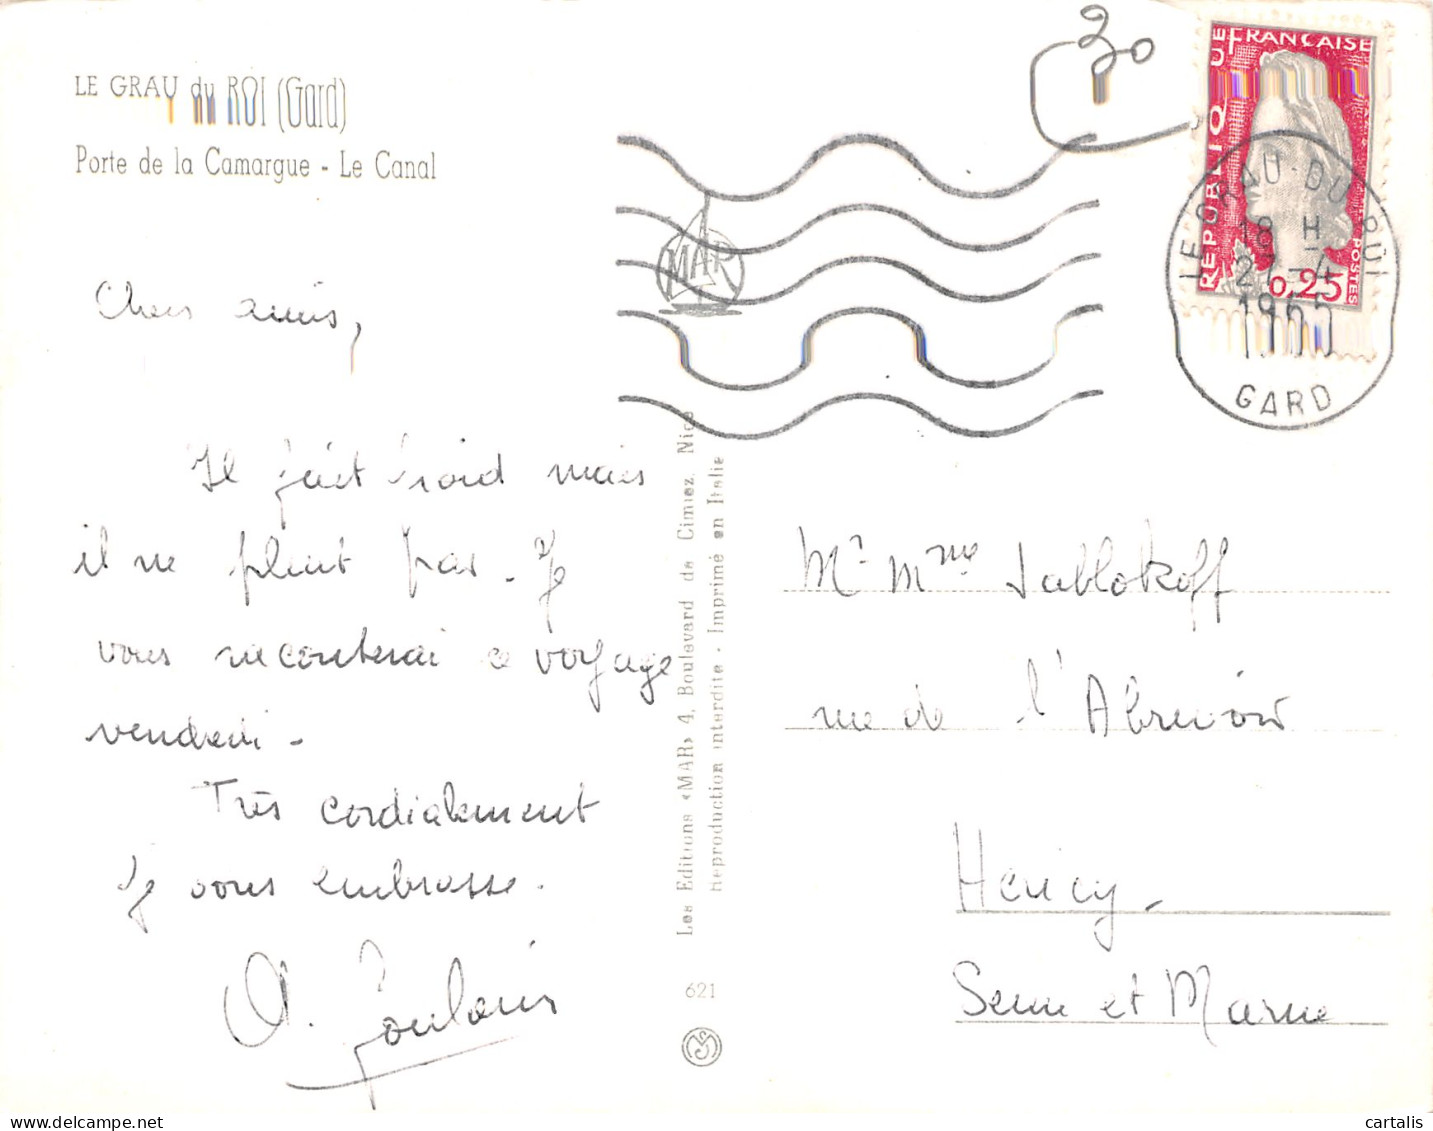 LE GRAU du ROI (Gard)
Porte de la Camargue - Le Canal
Chers amis,
Il fait froid mais
il ne pleut pas. Je
vous raconterai ce voyage
vendredi -
Très cordialement
Je vous embrasse.
MAR
Les Editions «MAR» 4, Boulevard de Cimiez, Nice
Reproduction interdite - Imprimé en Italie
621
30
REPUBLIQUE FRANÇAISE
POSTES
0,25
LE GRAU-DU-ROI
18 H
27-4
GARD
Mr Mme Jablokoff
rue de l'Abreuvoir
Hericy -
Seine et Marne
cartalis